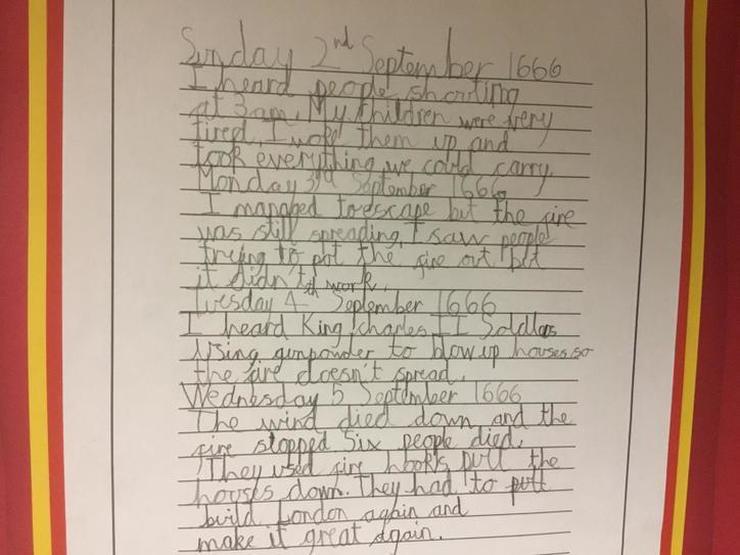 Sunday 2nd September 1666
I heard people shouting
at 3am. My children were very
tired. I woke them up and
took everything we could carry.
Monday 3rd September 1666
I managed to escape but the fire
was still spreading. I saw people
trying to put the fire out but
it didn't work.
Tuesday 4th September 1666
I heard King Charles II Soldiers
Using gunpowder to blow up houses so
the fire doesn't spread.
Wednesday 5 September 1666
The wind died down and the
fire stopped Six people died.
They used fire hooks pull the
houses down. They had to
build London again and
make it great again.